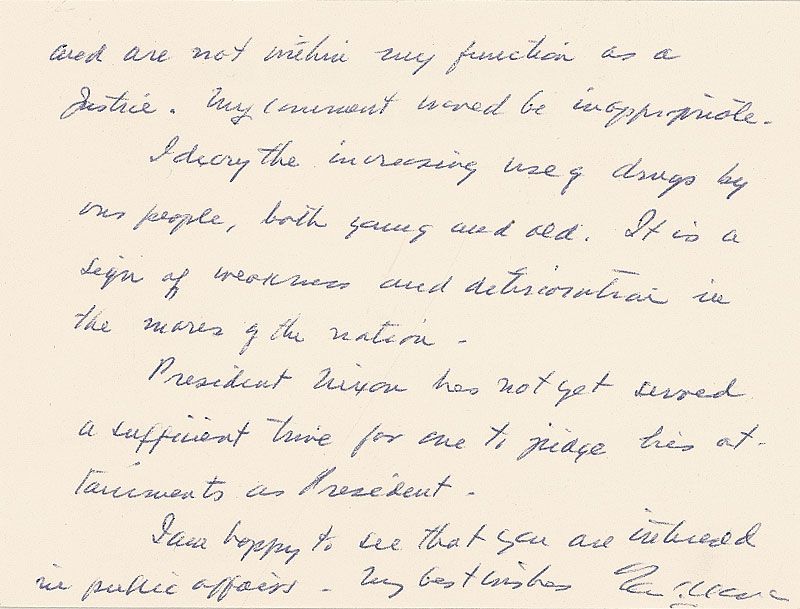 and are not within my function as a
Justice. My comment would be inappropriate.
I decry the increasing use of drugs by
our people, both young and old. It is a
sign of weakness and deterioration in
the mores of the nation.
President Nixon has not yet served
a sufficient time for one to judge his at-
tainments as President.
I am happy to see that you are interested
in public affairs. My best wishes